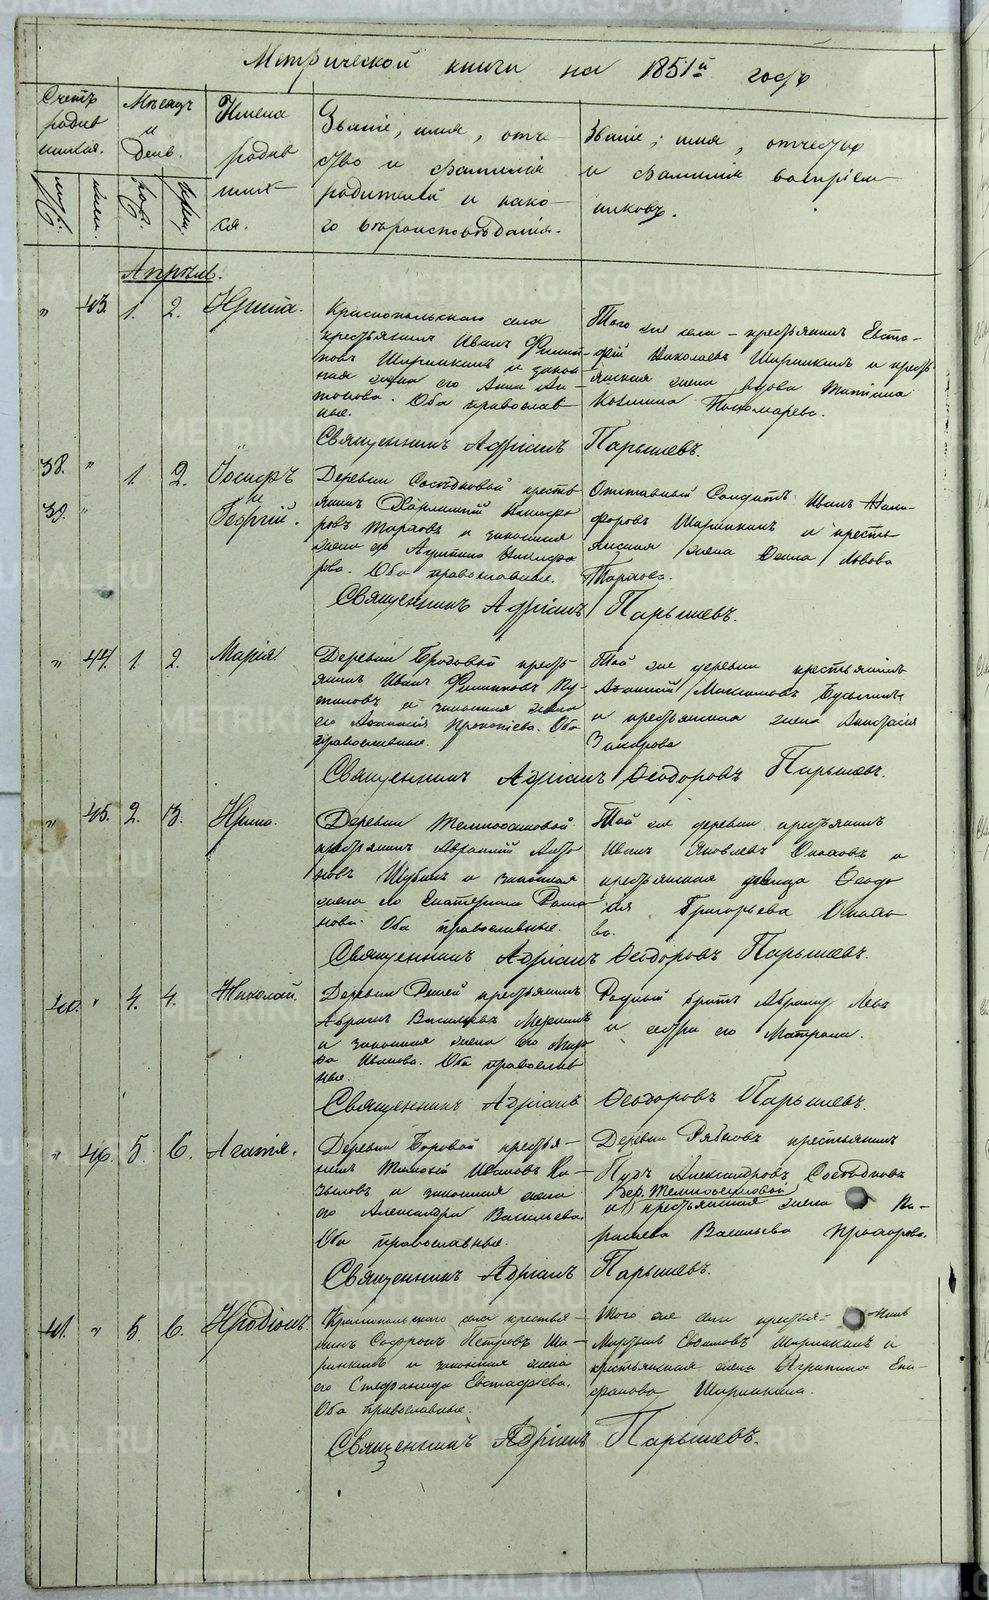 Метрической книги на 1851й годъ
Счетъ родив шихся.
Мѣсяцъ и День.
Имена родив ших- ся.
Званіе, имя, отче- ство и фамилія родителей и како- го вѣроисповѣданія.
Званіе, имя, отчество и фамилія воспріем- никовъ.
муж. жен. рож. крещ.
Апрѣль.
" 43. 1. 2. Ирина.
Краснопольскаго села
крестьянинъ Иванъ Филип-
повъ Ширинкинъ и закон-
ная жена его Анна Ан-
тонова. Оба православ
ные.
Того же села - крестьянинъ Евста-
фій Николаевъ Ширинкинъ и кресть
янская жена вдова Татіана
Козмина Пономарева.
Священникъ Адріанъ Парышевъ.
38. " 1. 2. Іосифъ
и
39. " Георгій.
Деревни Сосѣдковой кресть
янинъ Харлампій Никифо
ровъ Тарховъ и законная
жена его Агрипина Никифо
рова. Оба православные.
Отставный Солдатъ Иванъ Ники-
форовъ Ширинкинъ и кресть-
янская жена Ѳекла Львова
Тархова.
Священникъ Адріанъ Парышевъ.
" 44. 1. 2. Марія.
Деревни Бродовой кресть-
янинъ Иванъ Филипповъ Ку-
тиловъ и законная жена
его Афанасія Прокопіева. Оба
православные.
Той же деревни крестьянинъ
Афанасій Максимовъ
и крестьянская жена Анастасія
Захарова
Священникъ Адріанъ Ѳеодоровъ Парышевъ.
" 45. 2. 3. Ирина.
Деревни Темноосиновой
крестьянинъ Авраамій Анто
новъ Шубинъ и законная
жена его Екатерина Рома
нова. Оба православные.
Той же деревни крестьянинъ
Иванъ Яковлевъ и
крестьянская дѣвица Ѳеодо
сія Григорьева
ва.
Священникъ Адріанъ Ѳеодоровъ Парышевъ.
40. " 4. 4. Николай.
Деревни Рѣшей крестьянинъ
Абрамъ Васильевъ
и законная жена его Мар
ѳа Иванова. Оба православ
ные.
Родный братъ Абраму Левъ
и сестра его Матрона.
Священникъ Адріанъ Ѳеодоровъ Парышевъ.
" 46. 5. 6. Агапія.
Деревни Боровой крестья-
нинъ Тимофей Ивановъ Ка-
зыловъ и законная жена
его Александра Васильева.
Оба православные.
Деревни Рябковъ крестьянинъ
Пудъ Александровъ Сосѣдковъ
дер. Темноосиновой
и крестьянская жена Ка-
Васильева Прохорова.
Священникъ Адріанъ Парышевъ.
41. " 5. 6. Иродіонъ.
Краснопольскаго села крестья-
нинъ Софронъ Петровъ Ши-
ринкинъ и законная жена
его Стефанида Евстафіева.
Оба православные.
Того же села крестья- нинъ
Ширинкинъ и
крестьянская жена Агрипина Епи-
фанова Ширинкина.
Священникъ Адріанъ Парышевъ.
METRIKI.GASO-URAL.RU